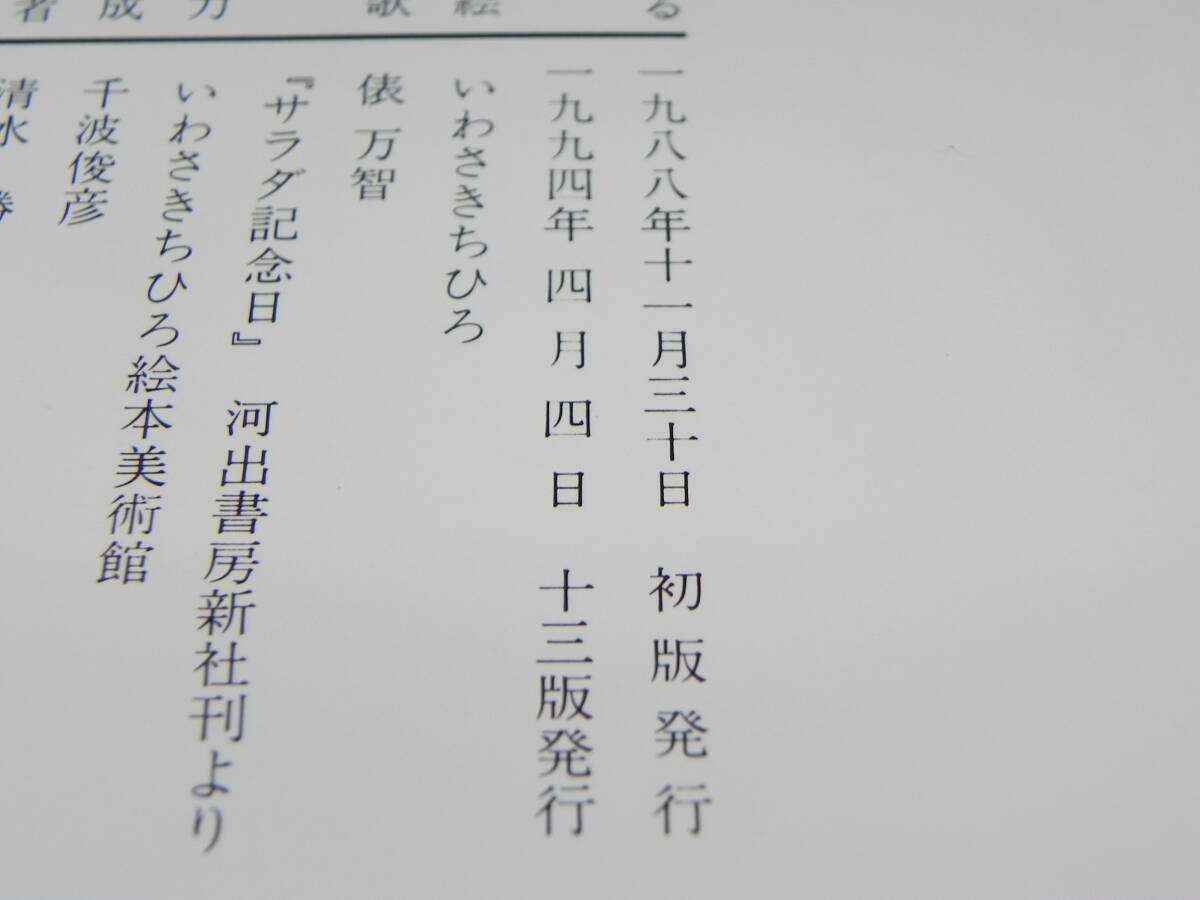 る
一九八八年十一月三十日 初版発行
一九九四年四月四日 十三版発行
絵
いわさきちひろ
歌
俵 万智
『サラダ記念日』 河出書房新社刊より
力
いわさきちひろ絵本美術館
成
千波俊彦
者
清水 勝